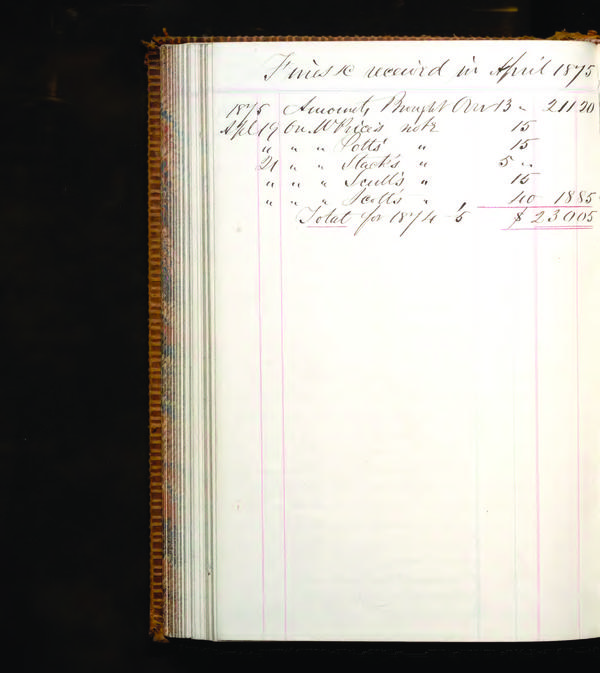 Fines &c received in April 1875
1875 Amounts Brought Over 13 " 211 20
Apl 19 On W Price's note 15
" " " Potts' " 15
21 " " Stack's " 5 "
" " " Scull's " 15
" " " Scott's " 40 18 85
Total for 1874-5 $ 230 05